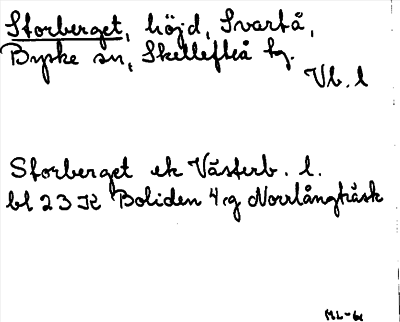 Storberget, höjd, Svartå,
Byske sn, Skellefteå tg.
Vb. l
Storberget ek Västerb. l.
bl 23 K Boliden 4:g Norrlångträsk